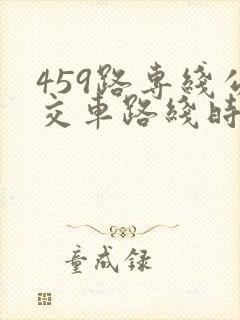 459路专线公
交车路线时
童成录